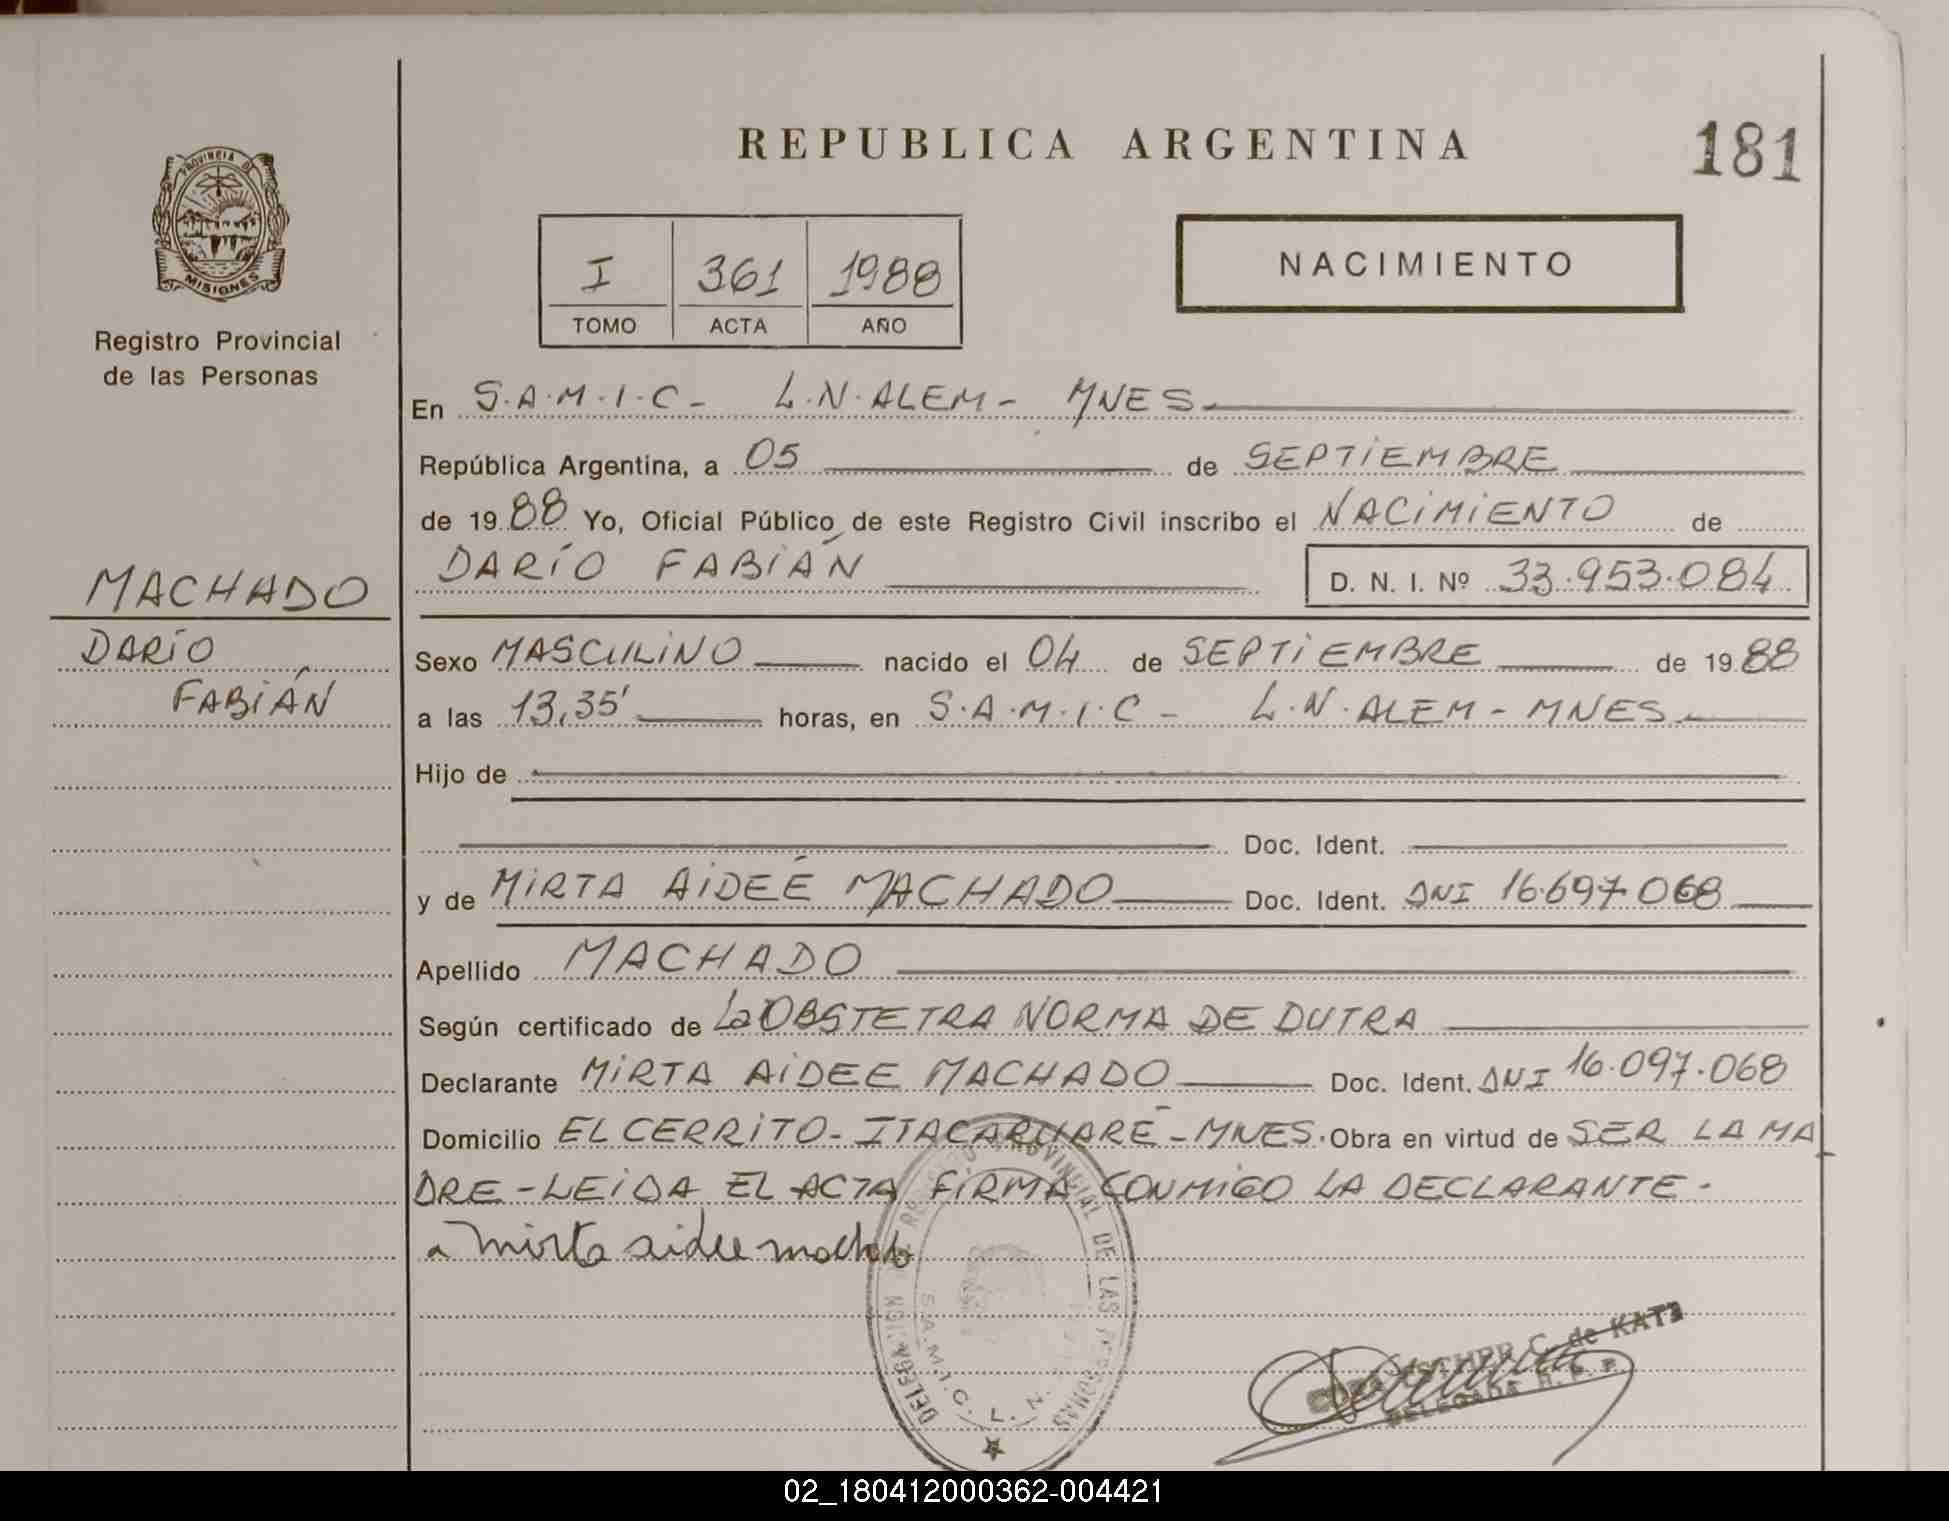 REPUBLICA ARGENTINA
181
PROVINCIA DE
MISIONES
Registro Provincial
de las Personas
I 361 1988
TOMO ACTA AÑO
NACIMIENTO
En S.A.M.I.C - L.N.ALEM - MNES
República Argentina, a 05 de SEPTIEMBRE
de 1988 Yo, Oficial Público de este Registro Civil inscribo el NACIMIENTO de
DARÍO FABIÁN D. N. I. Nº 33.953.084
MACHADO
DARÍO
FABIÁN
Sexo MASCULINO nacido el 04 de SEPTIEMBRE de 1988
a las 13,35' horas, en S.A.M.I.C - L.N.ALEM - MNES
Hijo de
Doc. Ident.
y de MIRTA AIDEÉ MACHADO Doc. Ident. DNI 16.697.068
Apellido MACHADO
Según certificado de La OBSTETRA NORMA DE DUTRA
Declarante MIRTA AIDEE MACHADO Doc. Ident. DNI 16.097.068
Domicilio EL CERRITO - ITACARUARÉ - MNES. Obra en virtud de SER LA MA
DRE - LEIDA EL ACTA FIRMA CONMIGO LA DECLARANTE -
Mirta aidee machado
REGISTRO PROVINCIAL DE LAS PERSONAS
DELEGACION
S.A.M.I.C. L. N.
ESTHER C. de KATZ
DELEGADA R. P. P.
02_180412000362-004421